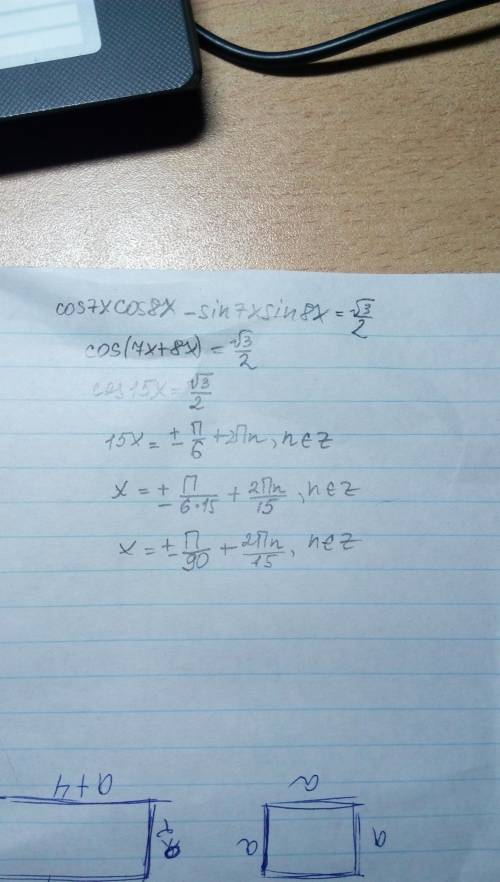 cos7xcos8x - sin7xsin8x = √3/2
cos(7x+8x) = √3/2
cos15x = √3/2
15x = ± П/6 + 2Пn, n∈Z
x = ± П/6·15 + 2Пn/15, n∈Z
x = ± П/90 + 2Пn/15, n∈Z
a+4
a
a
a